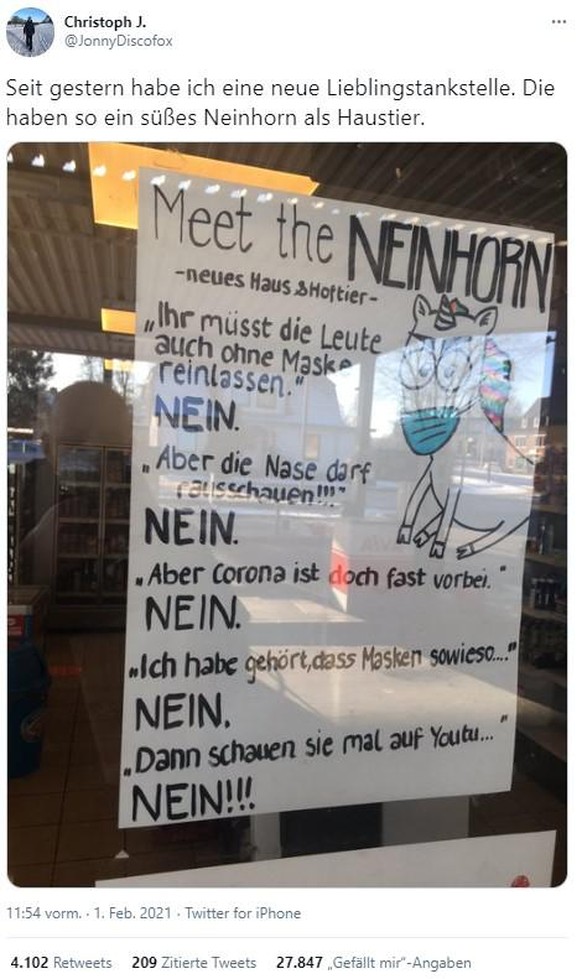 Christoph J.
@JonnyDiscofox
Seit gestern habe ich eine neue Lieblingstankstelle. Die
haben so ein süßes Neinhorn als Haustier.
Meet the NEINHORN
-neues Haus & Hoftier-
„Ihr müsst die Leute
auch ohne Maske
reinlassen."
NEIN.
„Aber die Nase darf
rausschauen!!!"
NEIN.
„Aber Corona ist doch fast vorbei."
NEIN.
„Ich habe gehört, dass Masken sowieso...."
NEIN.
„Dann schauen sie mal auf Youtu..."
NEIN!!!
11:54 vorm. · 1. Feb. 2021 · Twitter for iPhone
4.102 Retweets 209 Zitierte Tweets 27.847 „Gefällt mir“-Angaben